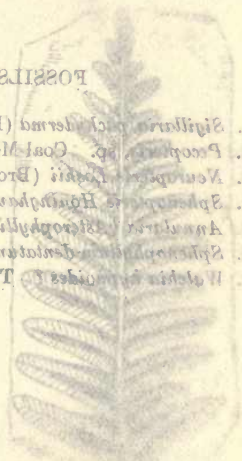 FOSSILS
Sigillaria pachyderma (
Pecopteris, sp. Coal-M
Neuropteris Loshii (Bro
Sphenopteris
Annularia (Asterophylli
Sphenophyllum dentatum
Walchia hypnoides